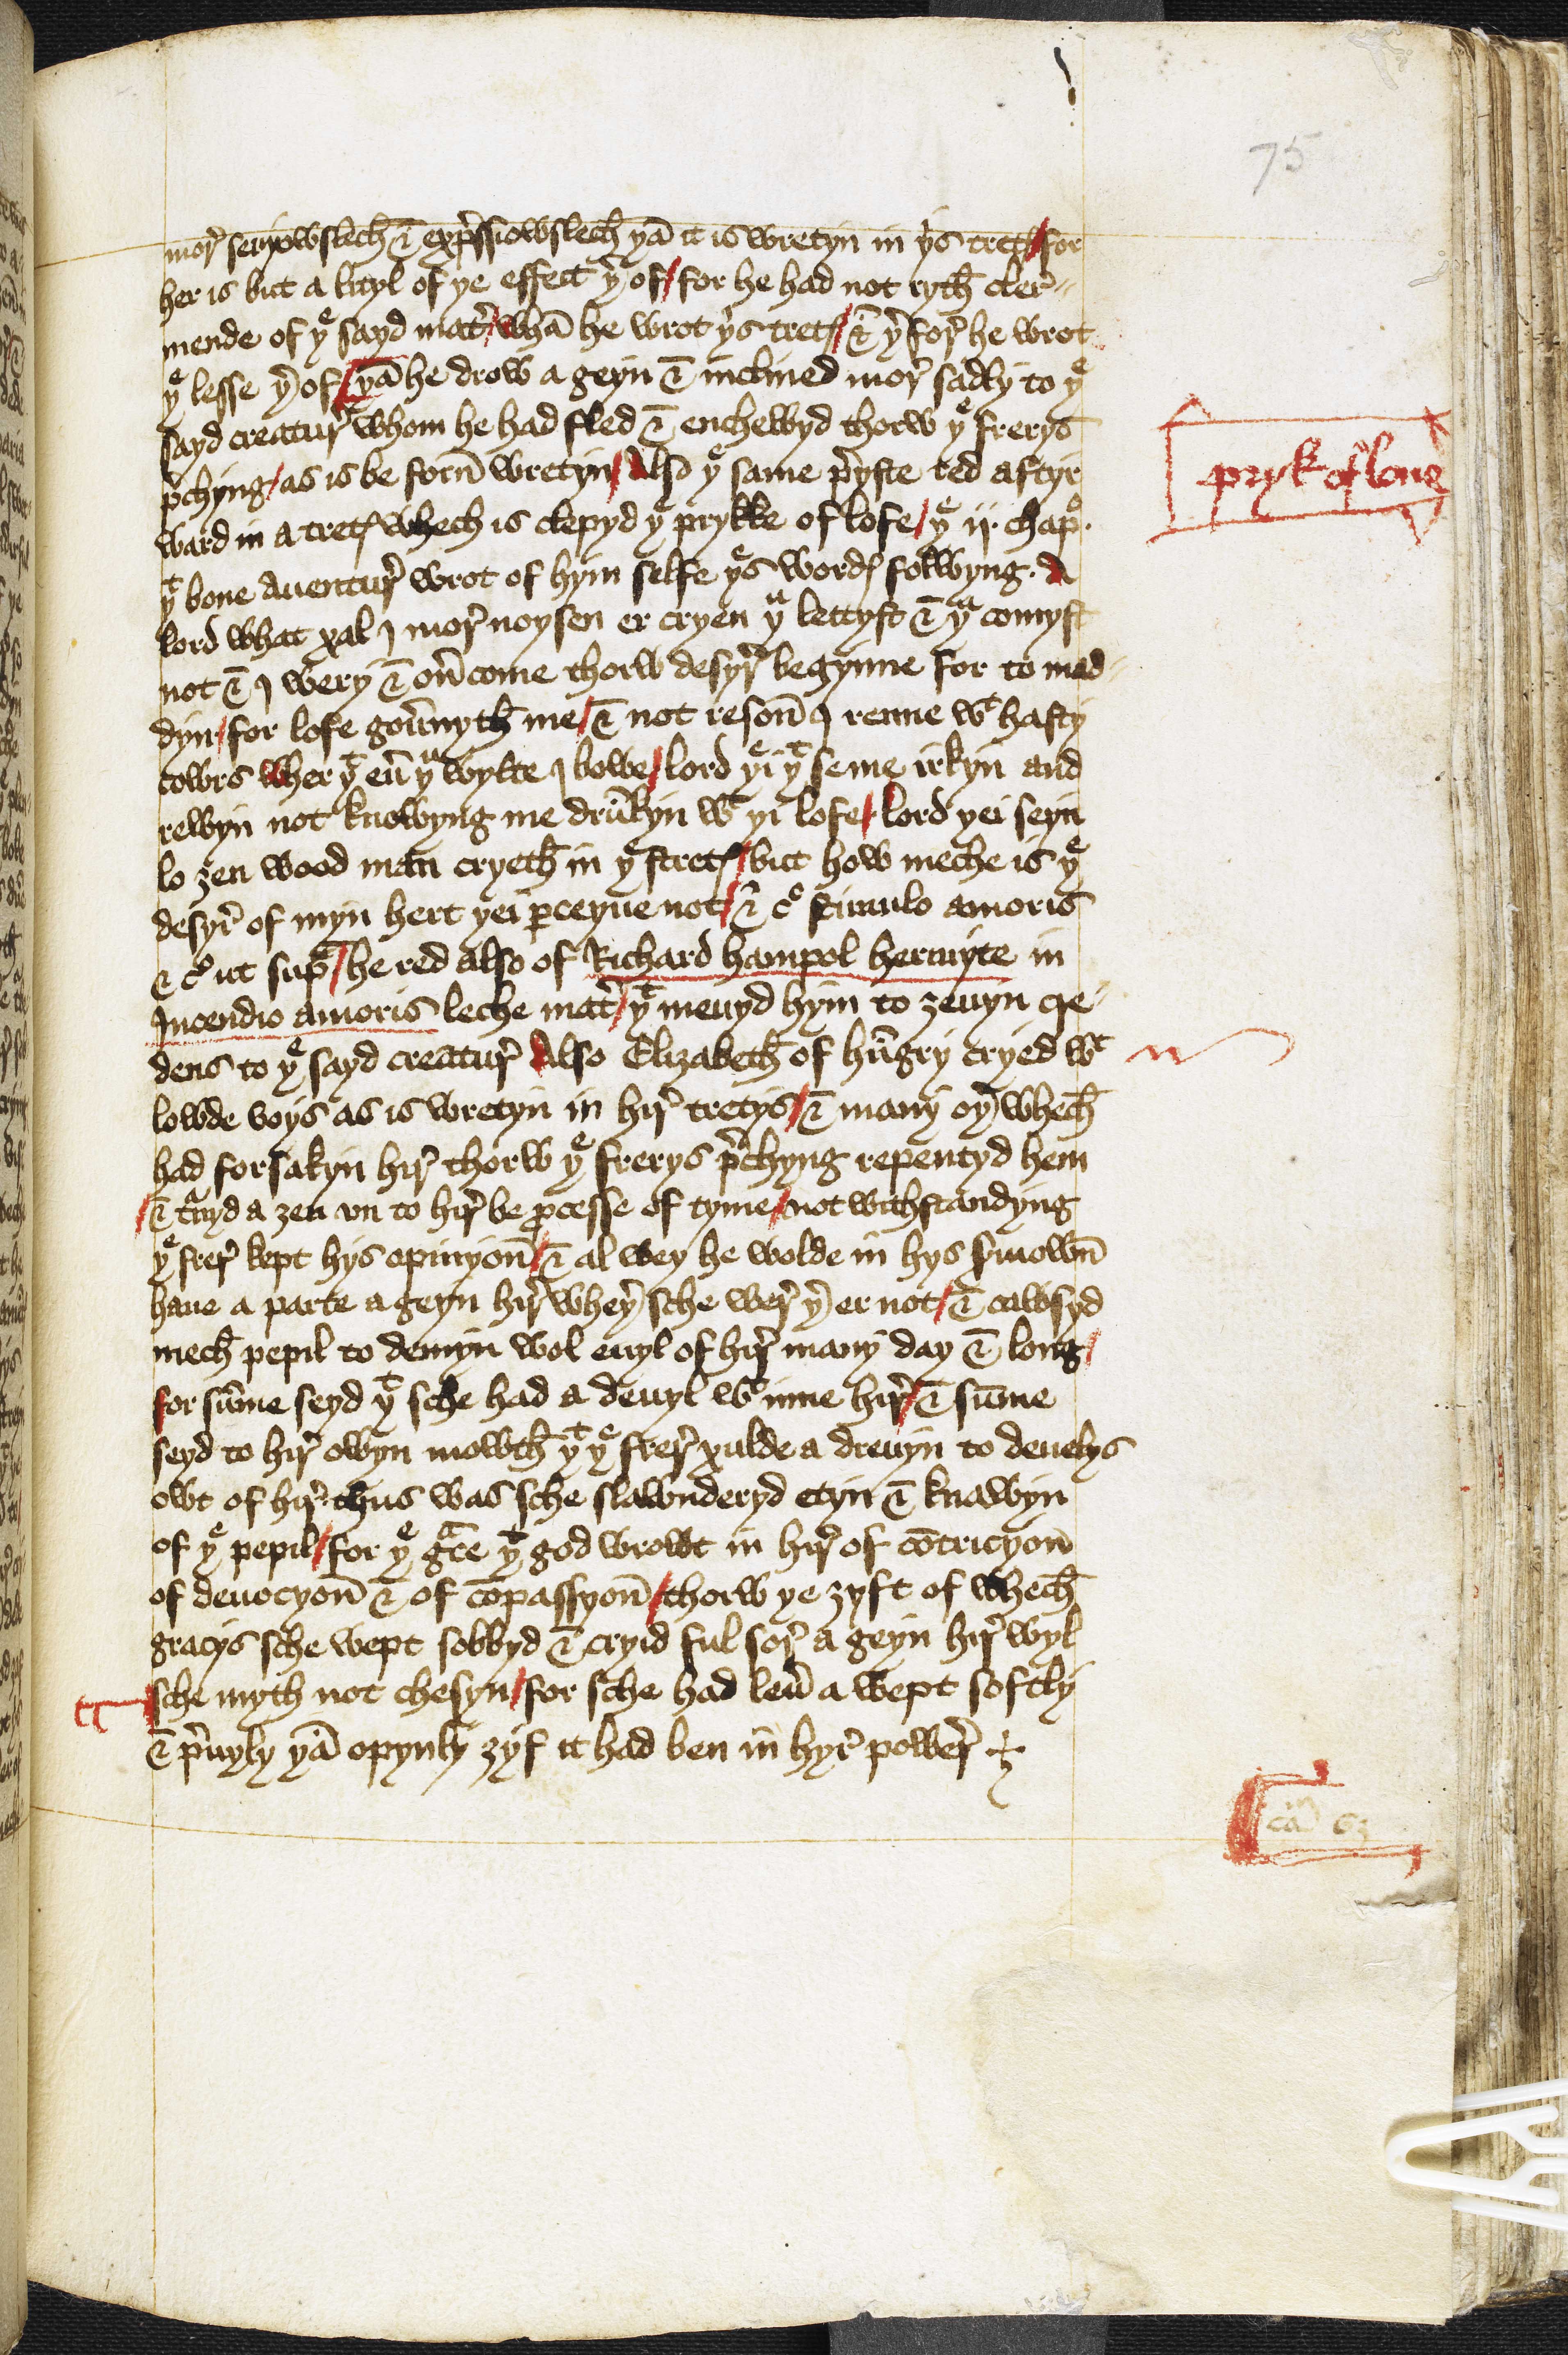 75
mor seryowslech & expressiowslech yan it is wretyn in ys tretys / for
her is but a lityl of ye effect yerof / for he had not ryth cler
mende of ye sayd mater whan he wrot ys tretys / & yerfor he wrot
ye lesse yerof / yan he drow a geyn & inclined mor sadly to ye
sayd creatur whom he had fled & enchewyd thorw ye frerys
prechyng / as is be forn wretyn / Also ye same preyste red aftyr
ward in a tretys whech is clepyd ye prykke of lofe / ye ij. chapo.
yt bone auentur wrot of hym selfe yes wordys folwyng. A
lord what xal I mor noysen er cryen yu lettyst & yu comyst
not & I wery & ouercome thorw desyr begynne for to mad
dyn / for lofe gouernyth me / & not reson I renne wt hasty
cowrs wher yt euer yu wylte I bowe / lord yei yt se me irkyn and
rewyn not knowyng me drunkyn wt yi lofe / lord yei seyn
lo zen wood man cryeth in ye stretys / but how meche is ye
desyr of myn hert yei perceyue not / & co stimulo amoris
& co ut supra / he red also of Richard hampol hermyte in
Incendio amoris leche mater / yt meuyd hym to zeuyn cre
dens to ye sayd creatur Also Elizabeth of hungry cryed wt
lowde voys as is wretyn in hir tretys / & many oyer whech
had forsakyn hir thorw ye frerys prechyng repentyd hem
& turnyd a zen vn to hir be processe of tyme / not withstandyng
ye frer kept hys opinyon / & al wey he wolde in hys sermown
haue a parte a geyn hir wheyer sche wer yer er not / & cawsyd
mech pepil to demyn wol euyl of hir many day & long /
for summe seyd yt sche had a deuyl wt inne hir / & summe
seyd to hir owyn mowth yt ye frer xulde a dreuyn to deuelys
owt of hir. thus was sche slawnderyd etyn & knawyn
of ye pepil / for ye grace yt god wrowt in hir of contricyon
of deuocyon & of compassyon / thorw ye zyft of whech
gracys sche wept sobbyd & cryid ful sor a geyn hir wyl
sche myth not chesyn / for sche had leuer a wept softly
& preuyly yan opynly zyf it had ben in hyr power
pryk of loue
cam 63